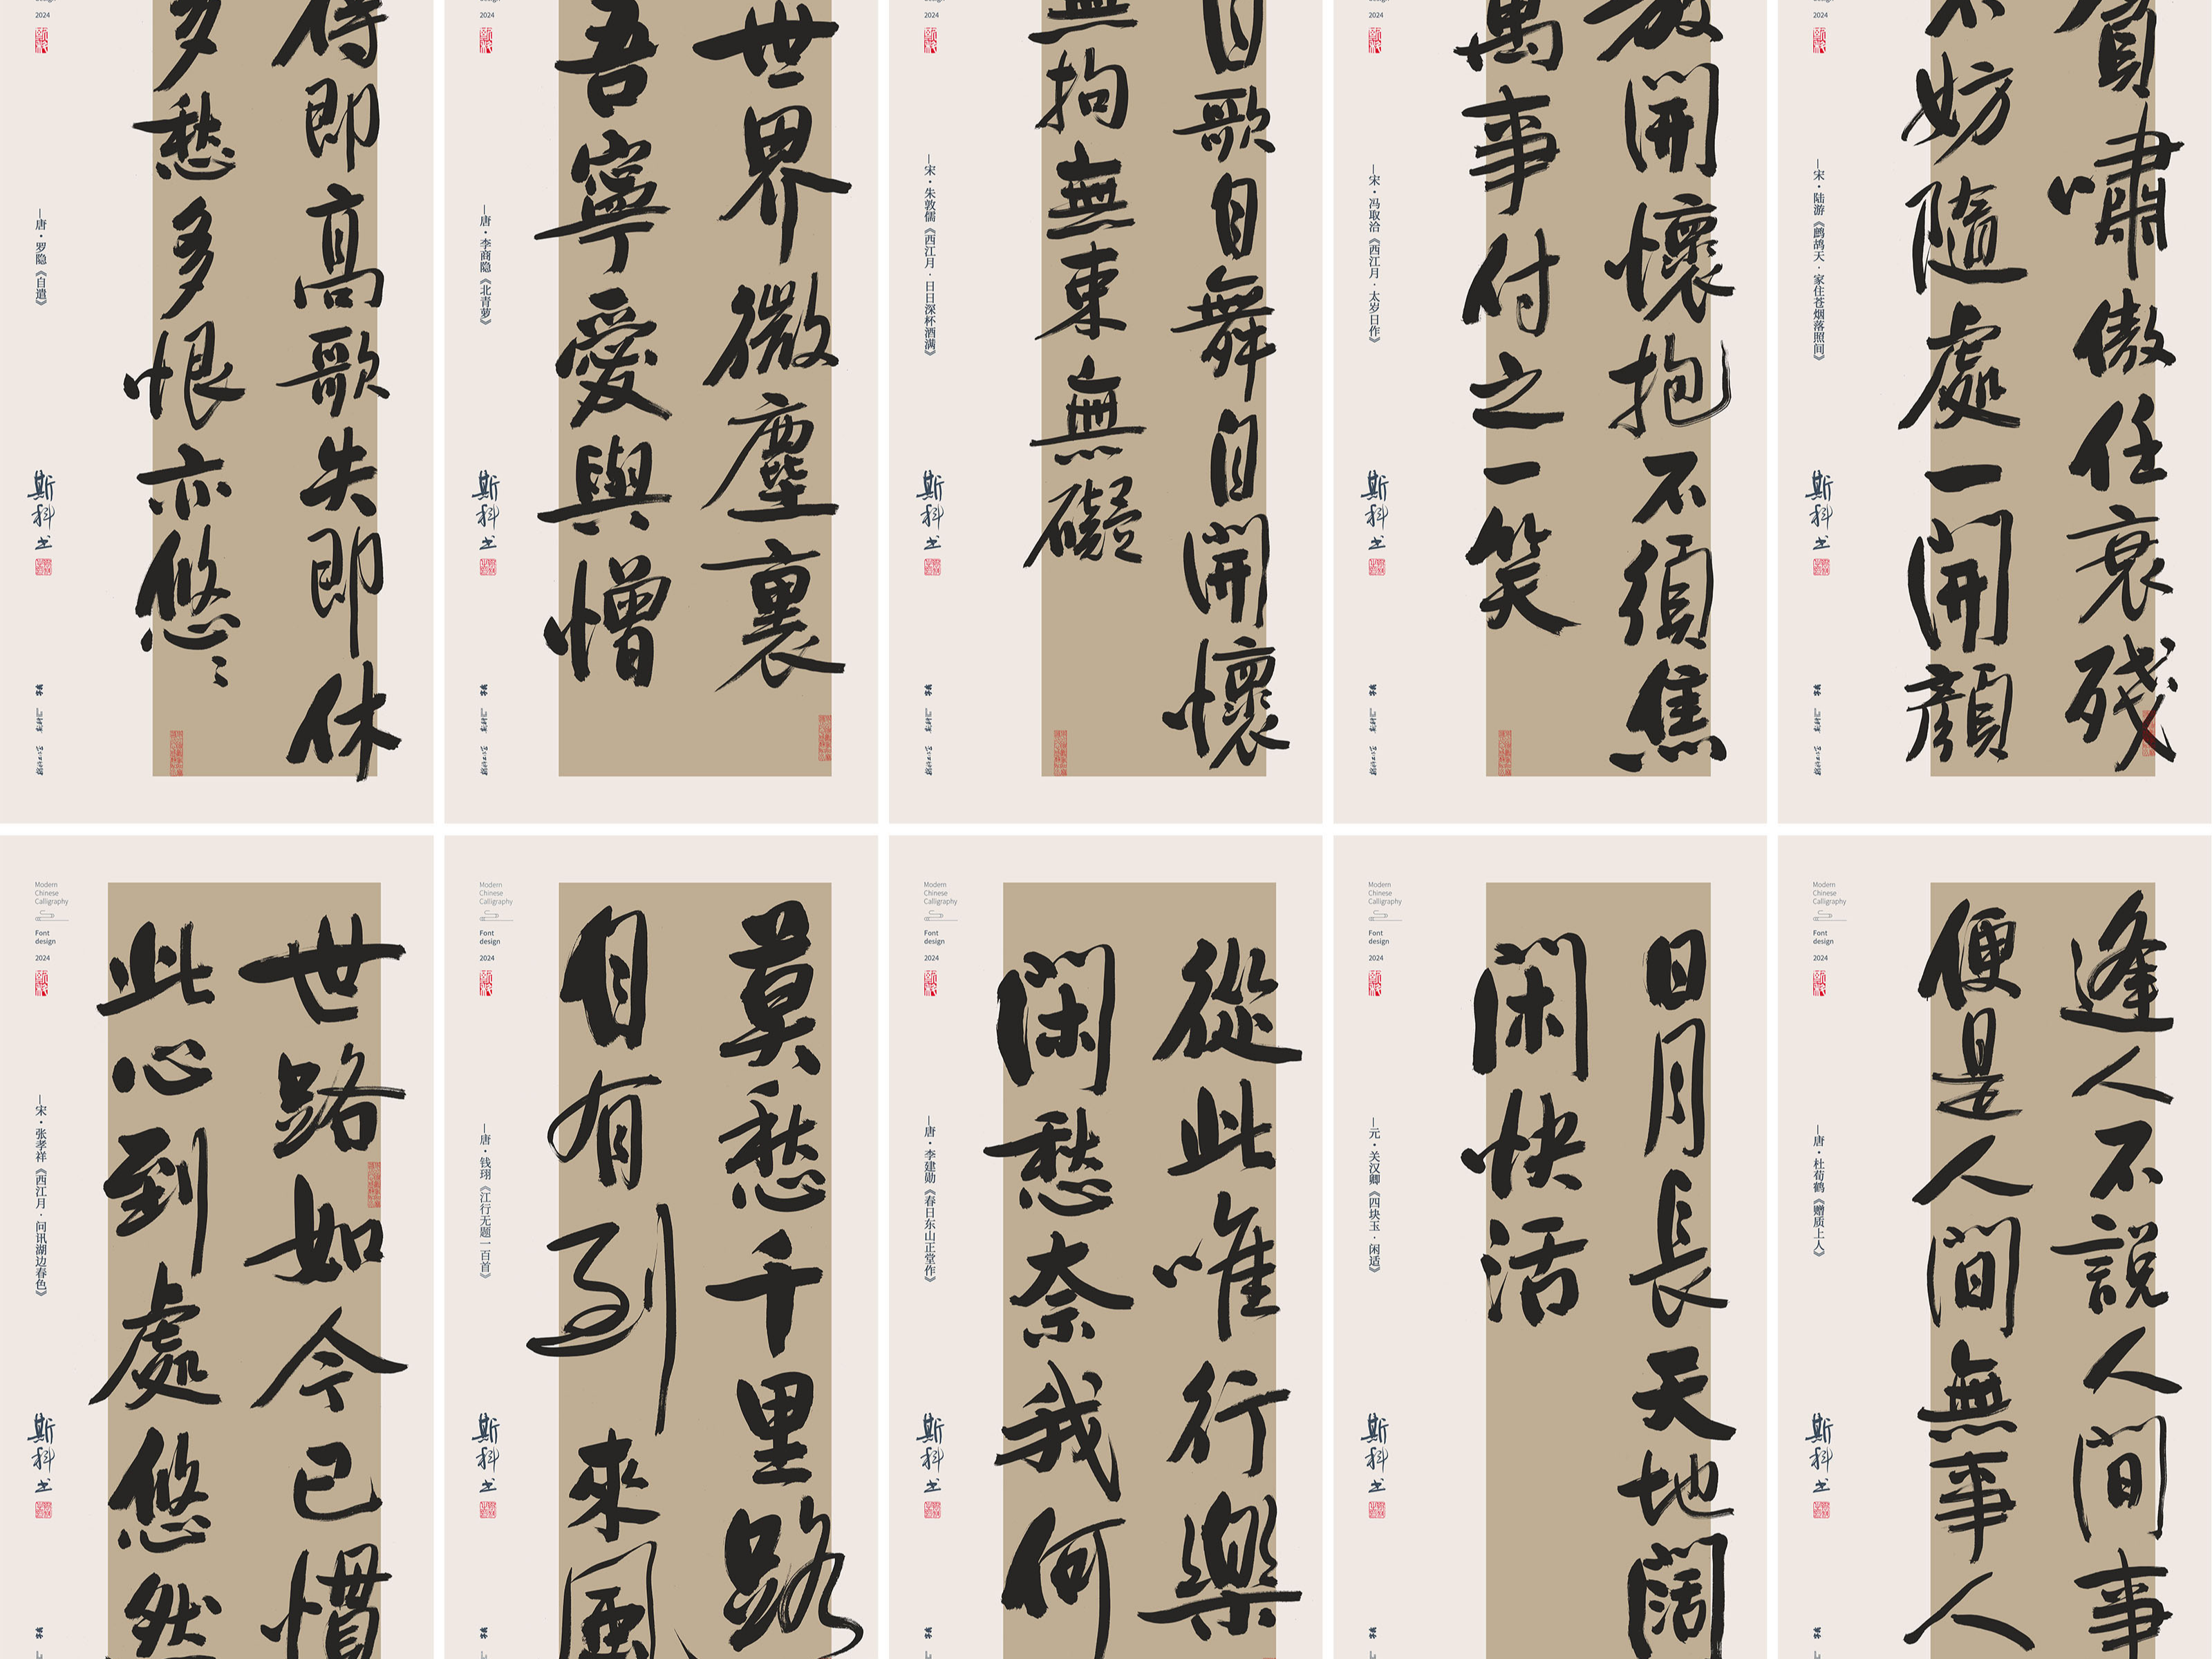 得即高歌失即休
多愁多恨亦悠々
2024
—唐·罗隐《自遣》
斯科书
世界微塵裏
吾寧愛與憎
2024
—唐·李商隐《北青萝》
斯科书
自歌自舞自開懷
無拘無束無礙
2024
—宋·朱敦儒《西江月·日日深杯酒满》
斯科书
放開懷抱不須焦
萬事付之一笑
2024
—宋·冯取洽《西江月·太岁日作》
斯科书
貧嘯傲任衰殘
不妨隨處一開顏
2024
—宋·陆游《鹧鸪天·家住苍烟落照间》
斯科书
世路如今已慣
此心到處悠然
Modern
Chinese
Calligraphy
Font
design
2024
—宋·张孝祥《西江月·问讯湖边春色》
斯科书
莫愁千里路
自有到來風
Modern
Chinese
Calligraphy
Font
design
2024
—唐·钱珝《江行无题一百首》
斯科书
從此唯行樂
閑愁奈我何
Modern
Chinese
Calligraphy
Font
design
2024
—唐·李建勋《春日东山正堂作》
斯科书
日月長天地闊
閑快活
Modern
Chinese
Calligraphy
Font
design
2024
—元·关汉卿《四块玉·闲适》
斯科书
逢人不說人間事
便是人間無事人
Modern
Chinese
Calligraphy
Font
design
2024
—唐·杜荀鹤《赠质上人》
斯科书